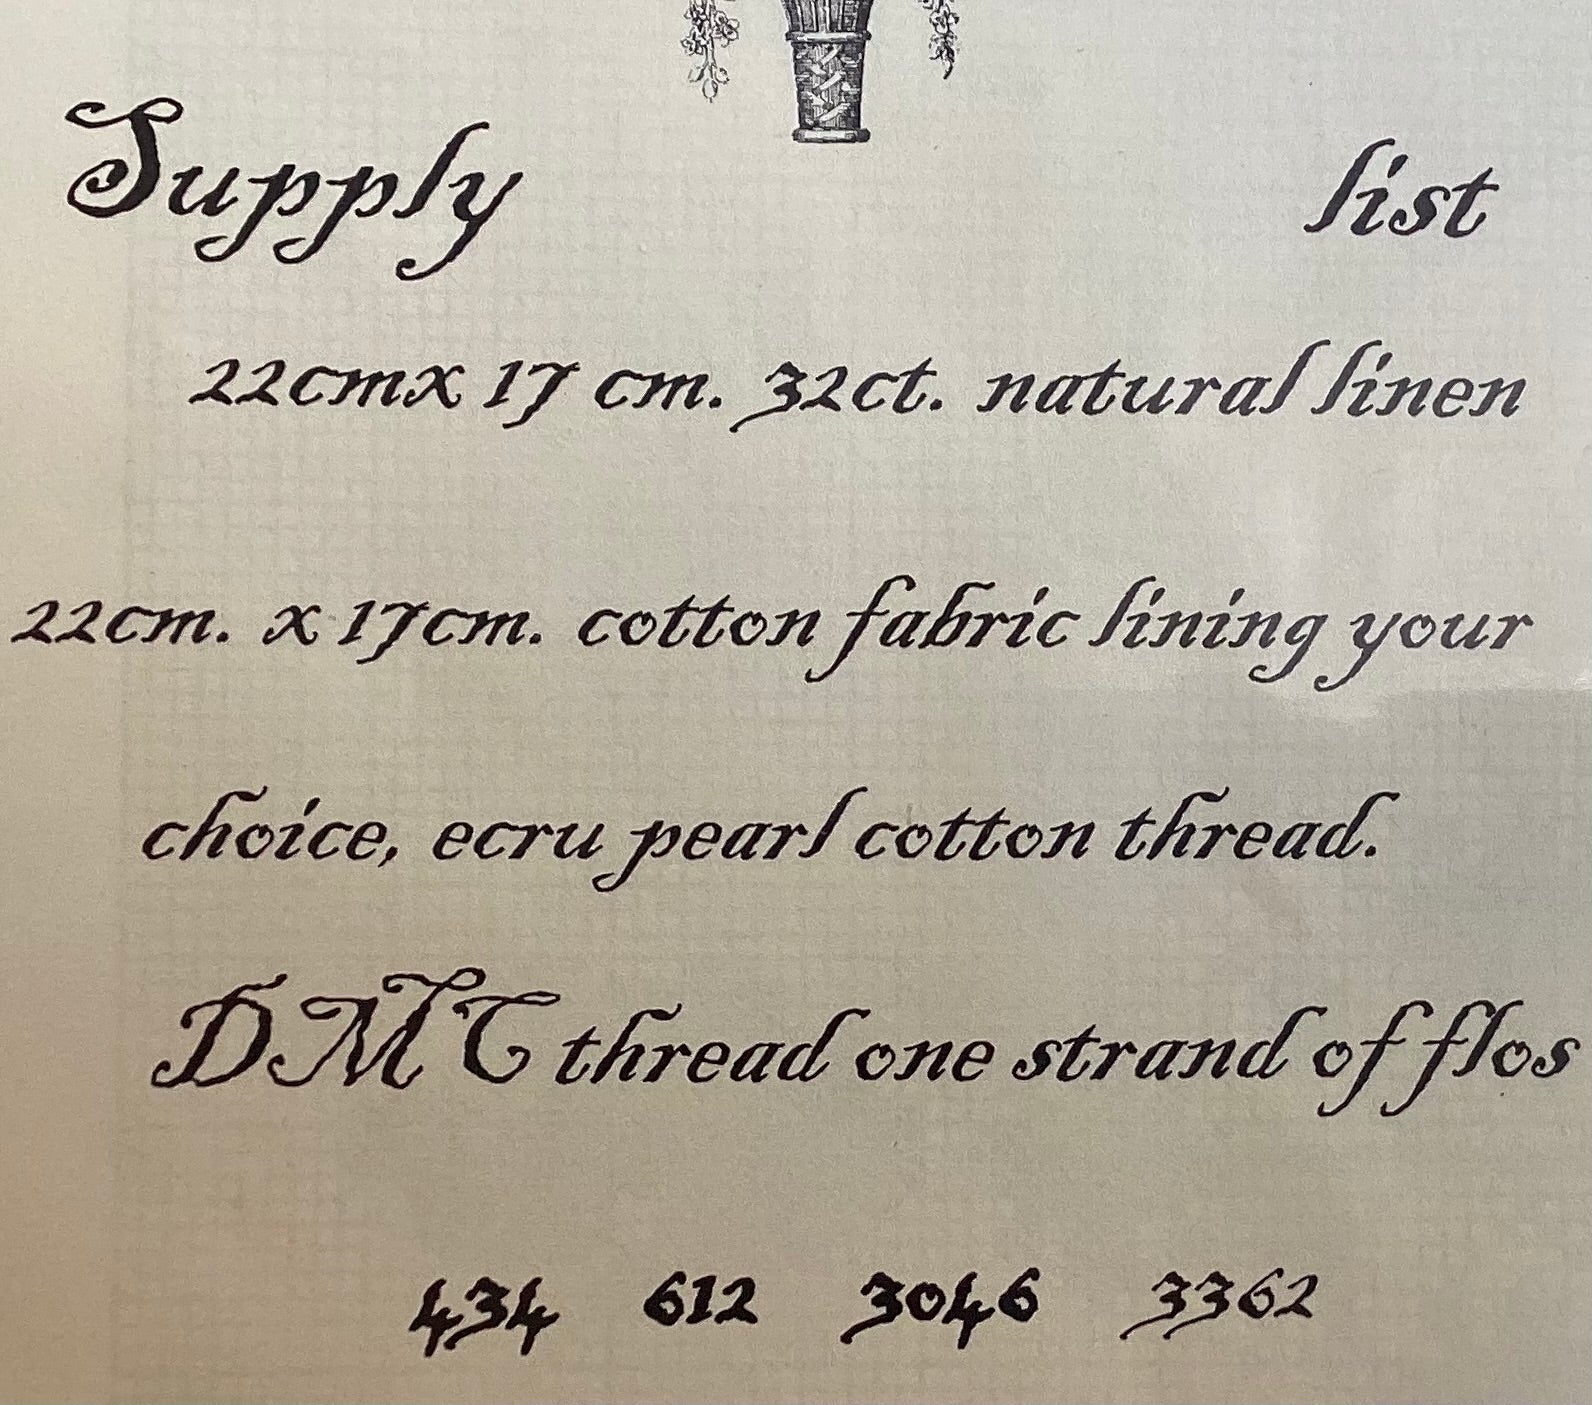 Supply list
22cmx 17 cm. 32ct. natural linen
22cm. x 17cm. cotton fabric lining your
choice, ecru pearl cotton thread.
DMC thread one strand of flos
434 612 3046 3362